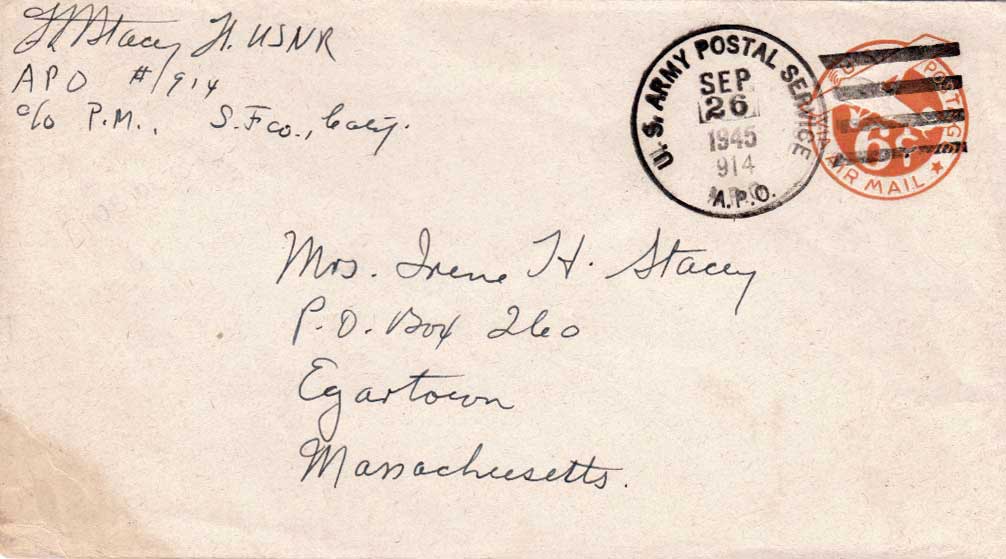 Stacey Lt. USNR
APO #914
c/o P.M., S.Fco., Calif.
U.S. ARMY POSTAL SERVICE
SEP
26
1945
914
A.P.O.
U.S. POSTAGE
6¢
AIR MAIL
Mrs. Irene H. Stacey
P.O. Box 260
Egartown
Massachusetts.